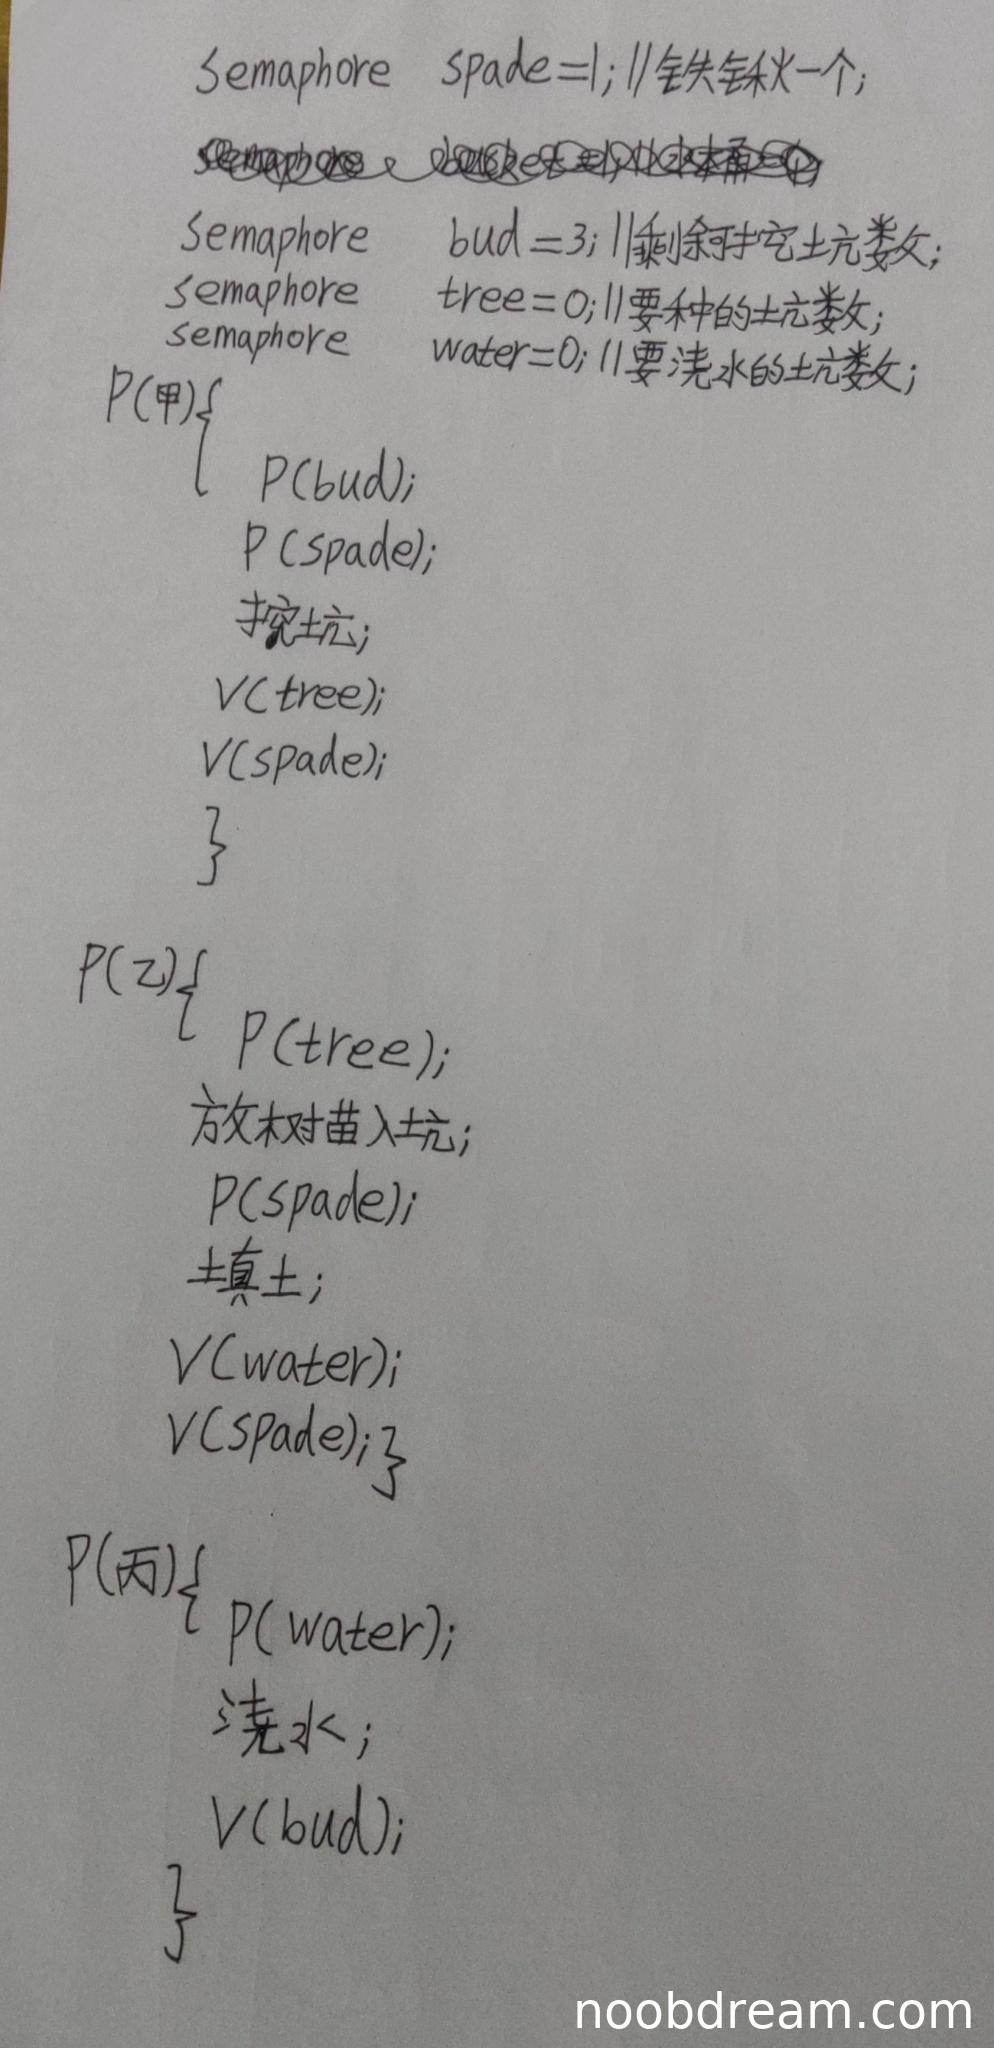 semaphore spade=1; //铁锹一个;
semaphore bud=3; //剩余可挖土坑数;
semaphore tree=0; //要种的土坑数;
semaphore water=0; //要浇水的土坑数;
P(甲){
P(bud);
P(spade);
挖坑;
V(tree);
V(spade);
}
P(乙){
P(tree);
放树苗入坑;
P(spade);
填土;
V(water);
V(spade);}
P(丙){
P(water);
浇水;
V(bud);
}
noobdream.com